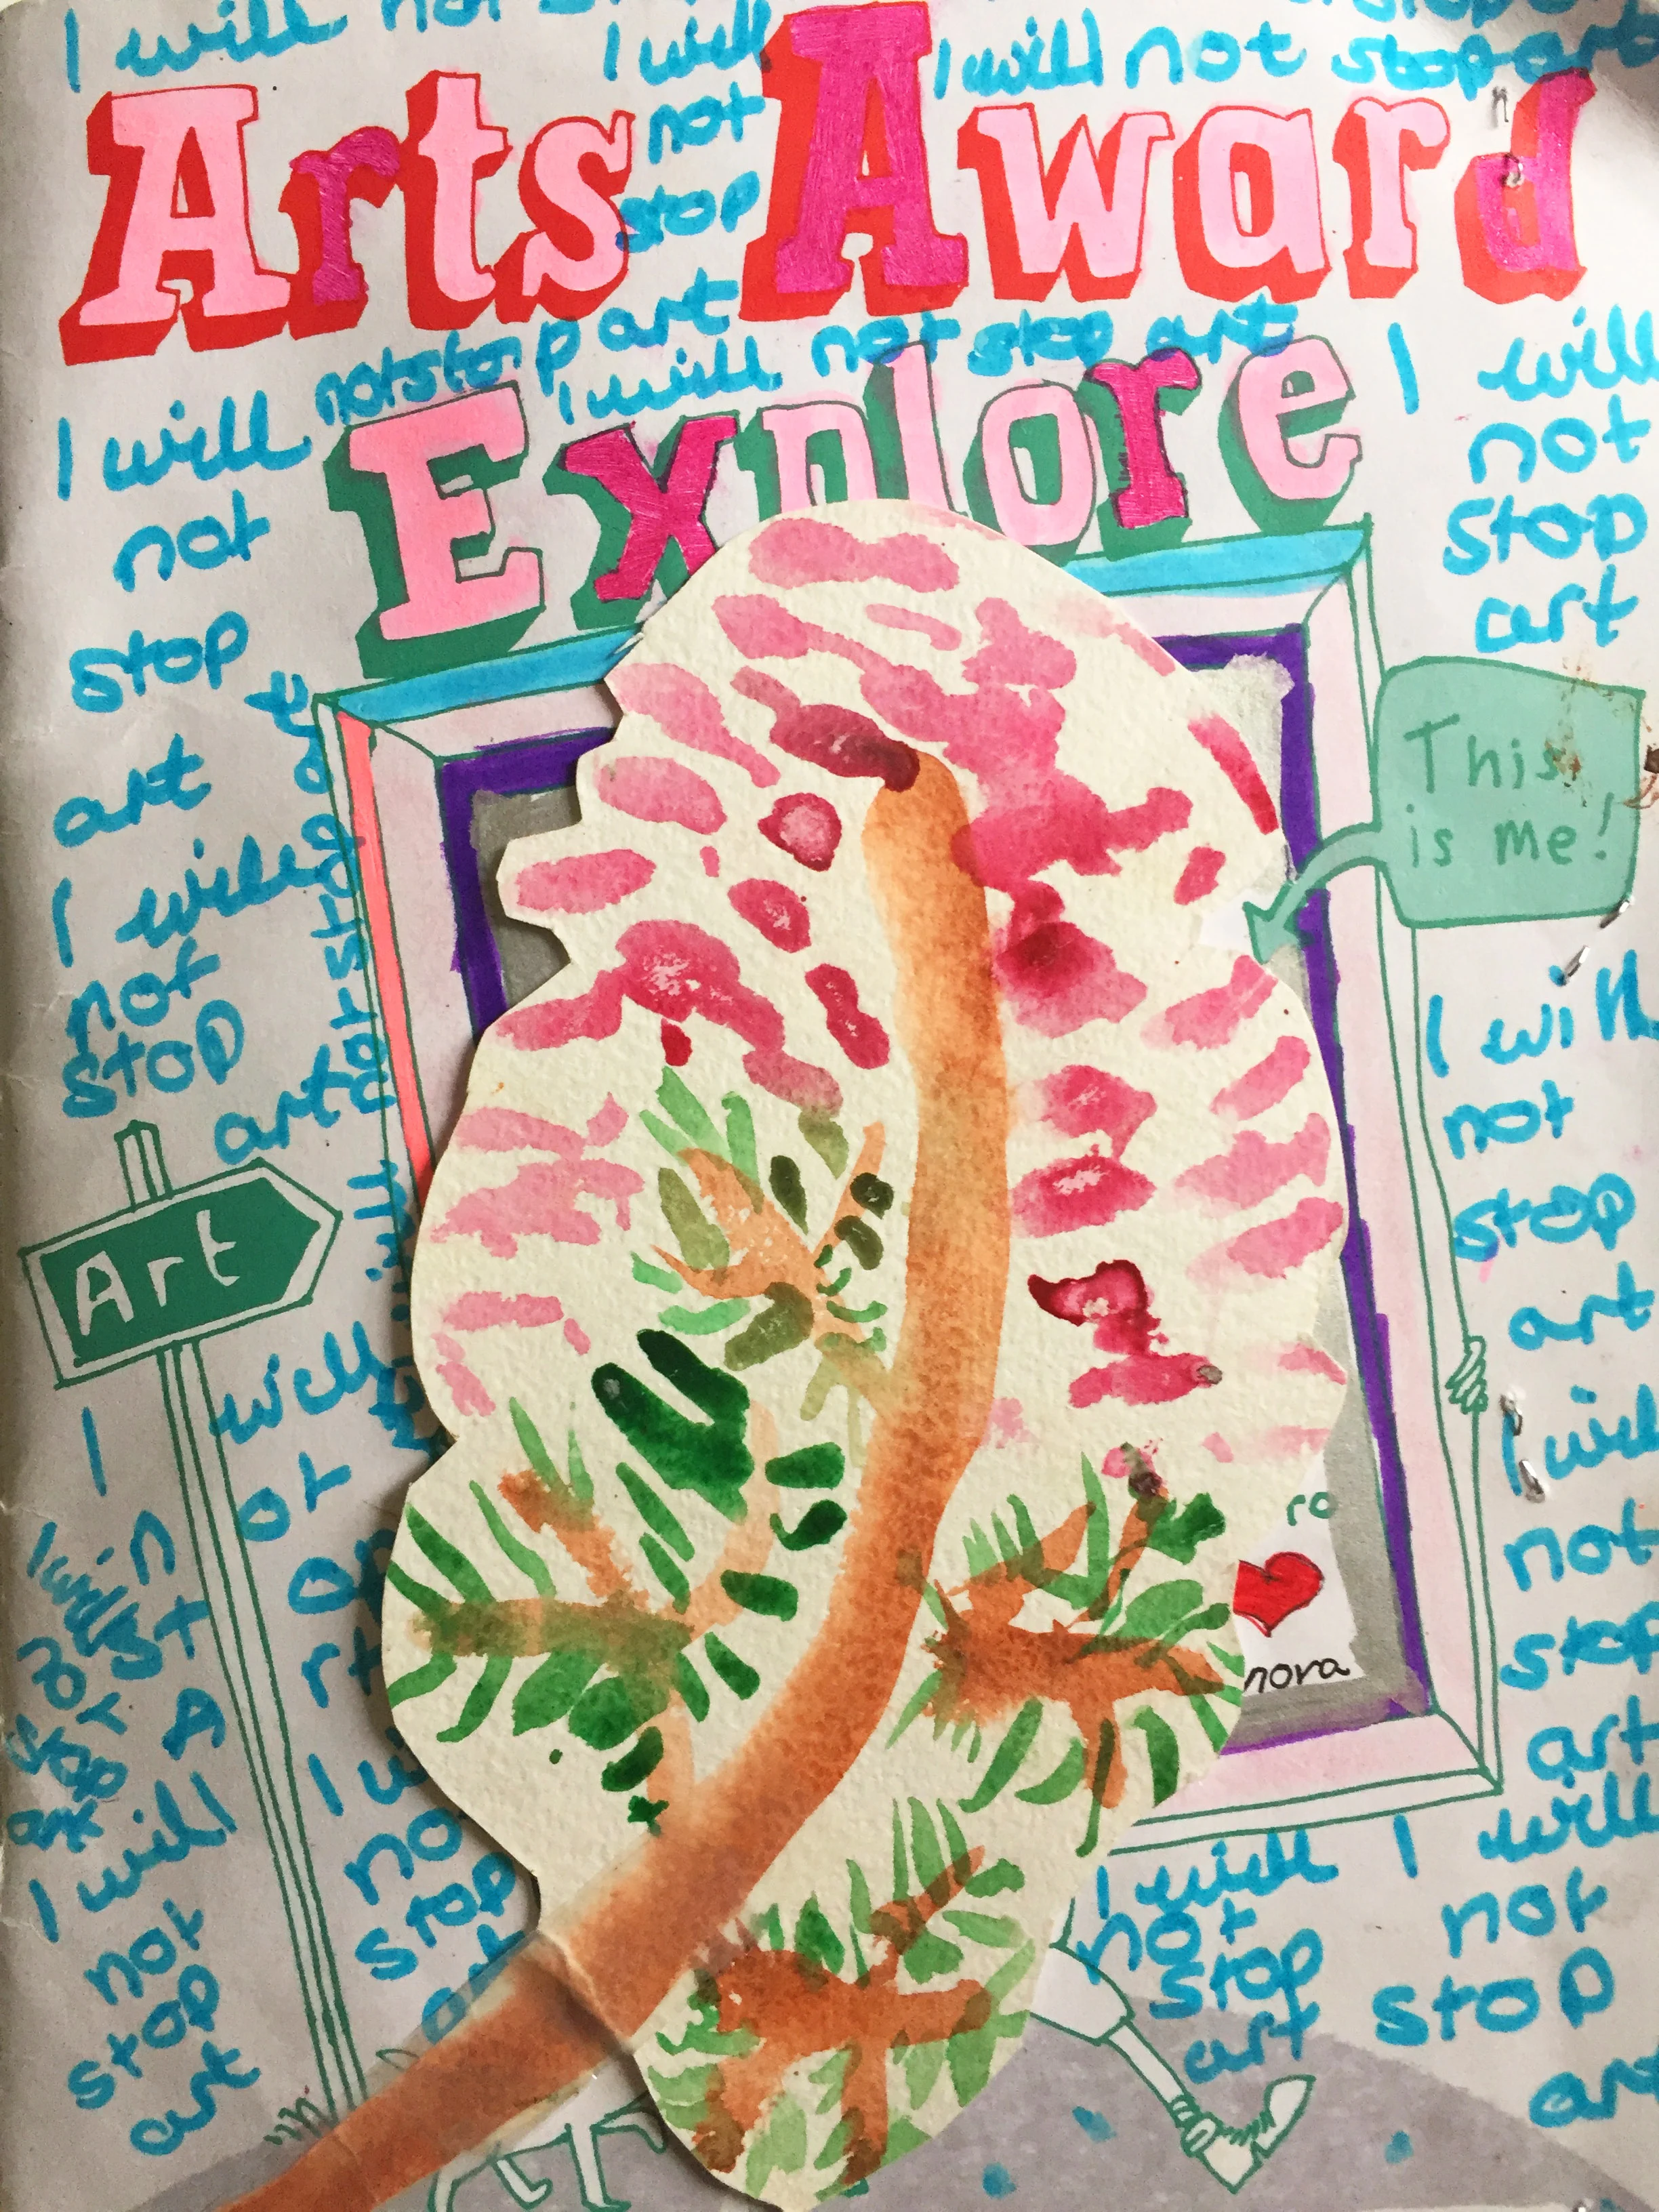 I will not
I will
not
stop
I will not stop art
Arts Award
I will not stop art
I will not stop art
Explore
I will
not
stop
art
I will
not
stop
art
This
is me!
I will
not
stop
art
I will
not
stop
art
Art
I will
not
stop
art
ro
nova
I will
not
stop
art
I will
not
stop
art
I will
not
stop
art
I will
not
stop
art